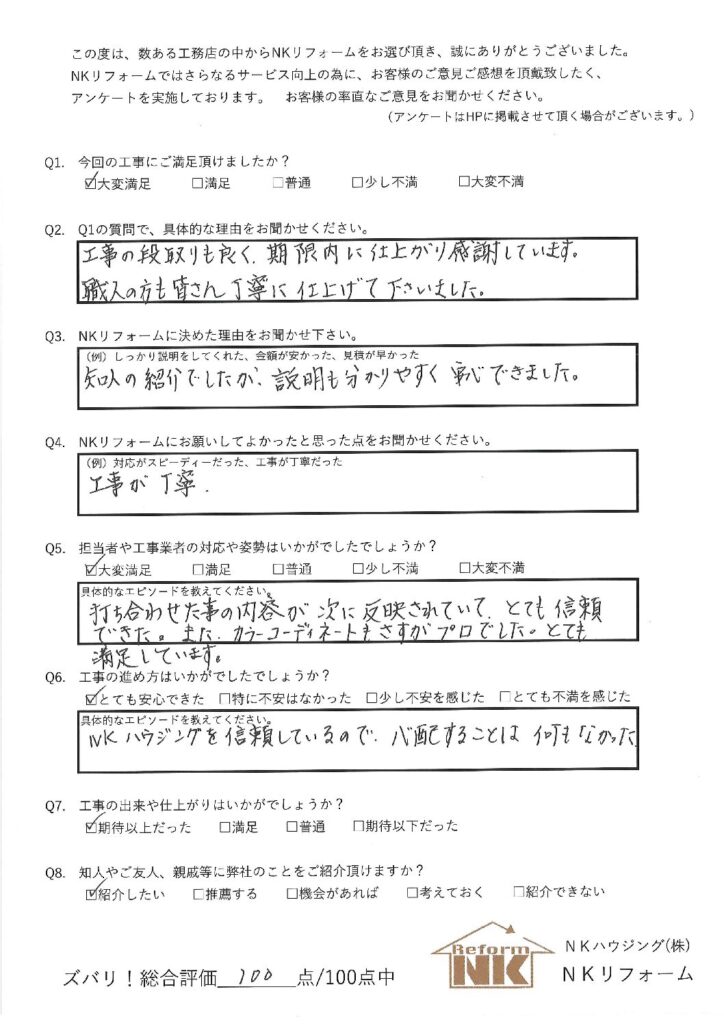 この度は、数ある工務店の中からNKリフォームをお選び頂き、誠にありがとうございました。
NKリフォームではさらなるサービス向上の為に、お客様のご意見ご感想を頂戴致したく、
アンケートを実施しております。　お客様の率直なご意見をお聞かせください。
（アンケートはHPに掲載させて頂く場合がございます。）
Q1. 今回の工事にご満足頂けましたか？
☑大変満足 □満足 □普通 □少し不満 □大変不満
Q2. Q1の質問で、具体的な理由をお聞かせください。
工事の段取りも良く、期限内に仕上がり感謝しています。
職人の方も皆さん丁寧に仕上げて下さいました。
Q3. NKリフォームに決めた理由をお聞かせ下さい。
（例）しっかり説明をしてくれた、金額が安かった、見積が早かった
知人の紹介でしたが、説明も分かりやすく安心できました。
Q4. NKリフォームにお願いしてよかったと思った点をお聞かせください。
（例）対応がスピーディーだった、工事が丁寧だった
工事が丁寧.
Q5. 担当者や工事業者の対応や姿勢はいかがでしたでしょうか？
☑大変満足 □満足 □普通 □少し不満 □大変不満
具体的なエピソードを教えてください。
打ち合わせた事の内容が次に反映されていて、とても信頼
できた。また、カラーコーディネートもさすがプロでした。とても
満足しています。
Q6. 工事の進め方はいかがでしたでしょうか？
☑とても安心できた □特に不安はなかった □少し不安を感じた □とても不満を感じた
具体的なエピソードを教えてください。
NKハウジングを信頼しているので、心配することは何もなかった
Q7. 工事の出来や仕上がりはいかがでしょうか？
☑期待以上だった □満足 □普通 □期待以下だった
Q8. 知人やご友人、親戚等に弊社のことをご紹介頂けますか？
☑紹介したい □推薦する □機会があれば □考えておく □紹介できない
Reform
NK
NKハウジング(株)
NKリフォーム
ズバリ！総合評価 100 点/100点中